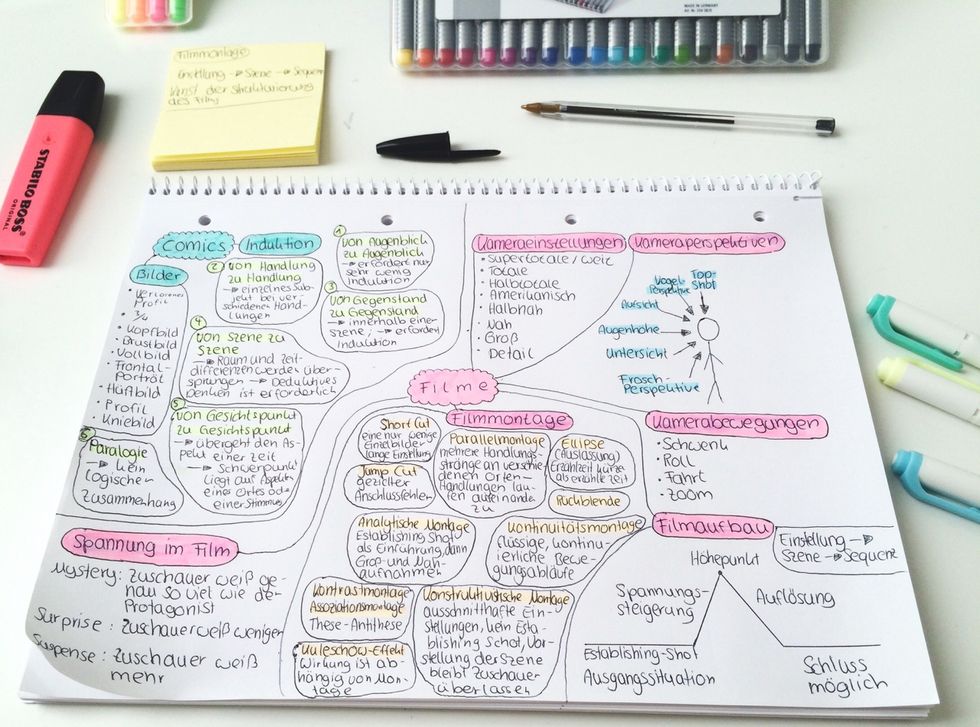 MADE IN GERMANY
STABILO BOSS
ORIGINAL
Filmmontage
Einstllung → Szene → Sequenz
Kunst der Strukturierung
des Films
Comics
Induktion
Bilder
• verlorenes
Profil
• 3/4
• Kopfbild
• Brustbild
• Vollbild
• Frontal-
porträt
• Hüftbild
• Profil
• Kniebild
1
von Augenblick
zu Augenblick
→ erfordert nur
sehr wenig
Induktion
2
von Handlung
zu Handlung
→ einzelnes Sub-
jekt bei ver-
schiedenen Hand-
lungen
3
von Gegenstand
zu Gegenstand
→ innerhalb einer
Szene; → erfordert
Induktion
4
von Szene zu
Szene
→ Raum und Zeit-
differenzen werden über-
sprungen → Deduktives
Denken ist erforderlich
5
von Gesichtspunkt
zu Gesichtspunkt
→ übergeht den As-
pekt einer Zeit
→ Schwerpunkt
liegt auf Aspekten
eines Ortes od.
einer Stimmung
6
Paralogie
→ kein
logischer
Zusammenhang
Kameraeinstellungen
• Supertotale / weit
• Totale
• Halbtotale
• Amerikanisch
• Halbnah
• Nah
• Groß
• Detail
Kameraperspektiven
Vogel-
Perspektive
Top-
Shot
Aufsicht
Augenhöhe
Untersicht
Frosch-
Perspektive
Filme
Filmmontage
Short Cut
eine nur wenge
Einzelbilder
lange Einstellung
Jump Cut
gezielter
Anschlussfehler
Parallelmontage
mehrere Handlungs-
stränge an verschie-
denen Orten-
Handlungen lau-
fen aufeinander
zu
Ellipse
(Auslassung)
Erzählzeit kürzer
als erzählte Zeit
Rückblende
Analytische Montage
Establishing Shot
als Einführung, dann
Groß- und Nah-
aufnahmen
Kontinuitätsmontage
flüssige, kontinu-
ierliche Bewe-
gungsabläufe
Kontrastmontage
Assoziationsmontage
These-Antithese
Kuleschow-Effekt
Wirkung ist ab-
hängig von Mon-
tage
Konstruktivistische Montage
ausschnitthafte Ein-
stellungen, kein Esta-
blishing Schot, Vor-
stellung der Szene
bleibt Zuschauer
überlassen
Kamerabewegungen
• Schwenk
• Roll
• Fahrt
• Zoom
Filmaufbau
Einstellung →
Szene → Sequenz
Höhepunkt
Spannungs-
steigerung
Auflösung
Establishing-Shot
Ausgangssituation
Schluss
möglich
Spannung im Film
Mystery: Zuschauer weiß ge-
nau so viel wie der
Protagonist
Surprise: Zuschauer weiß weniger
Suspense: Zuschauer weiß
mehr